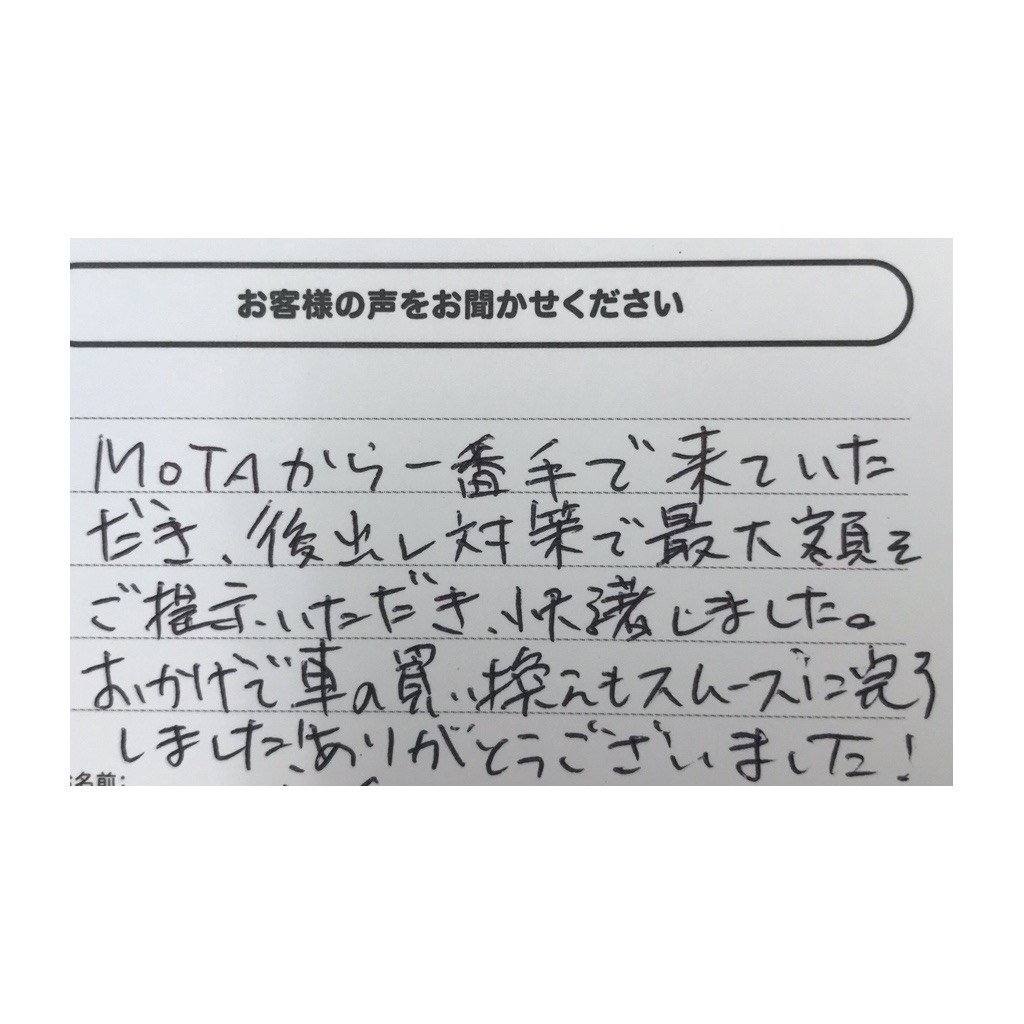 お客様の声をお聞かせください
MoTAから一番手で来ていた
だき、後出し対策で最大額を
ご提示いただき、快諾しました。
おかげで車の買い換えもスムーズに完了
しました!ありがとうございました!
名前: